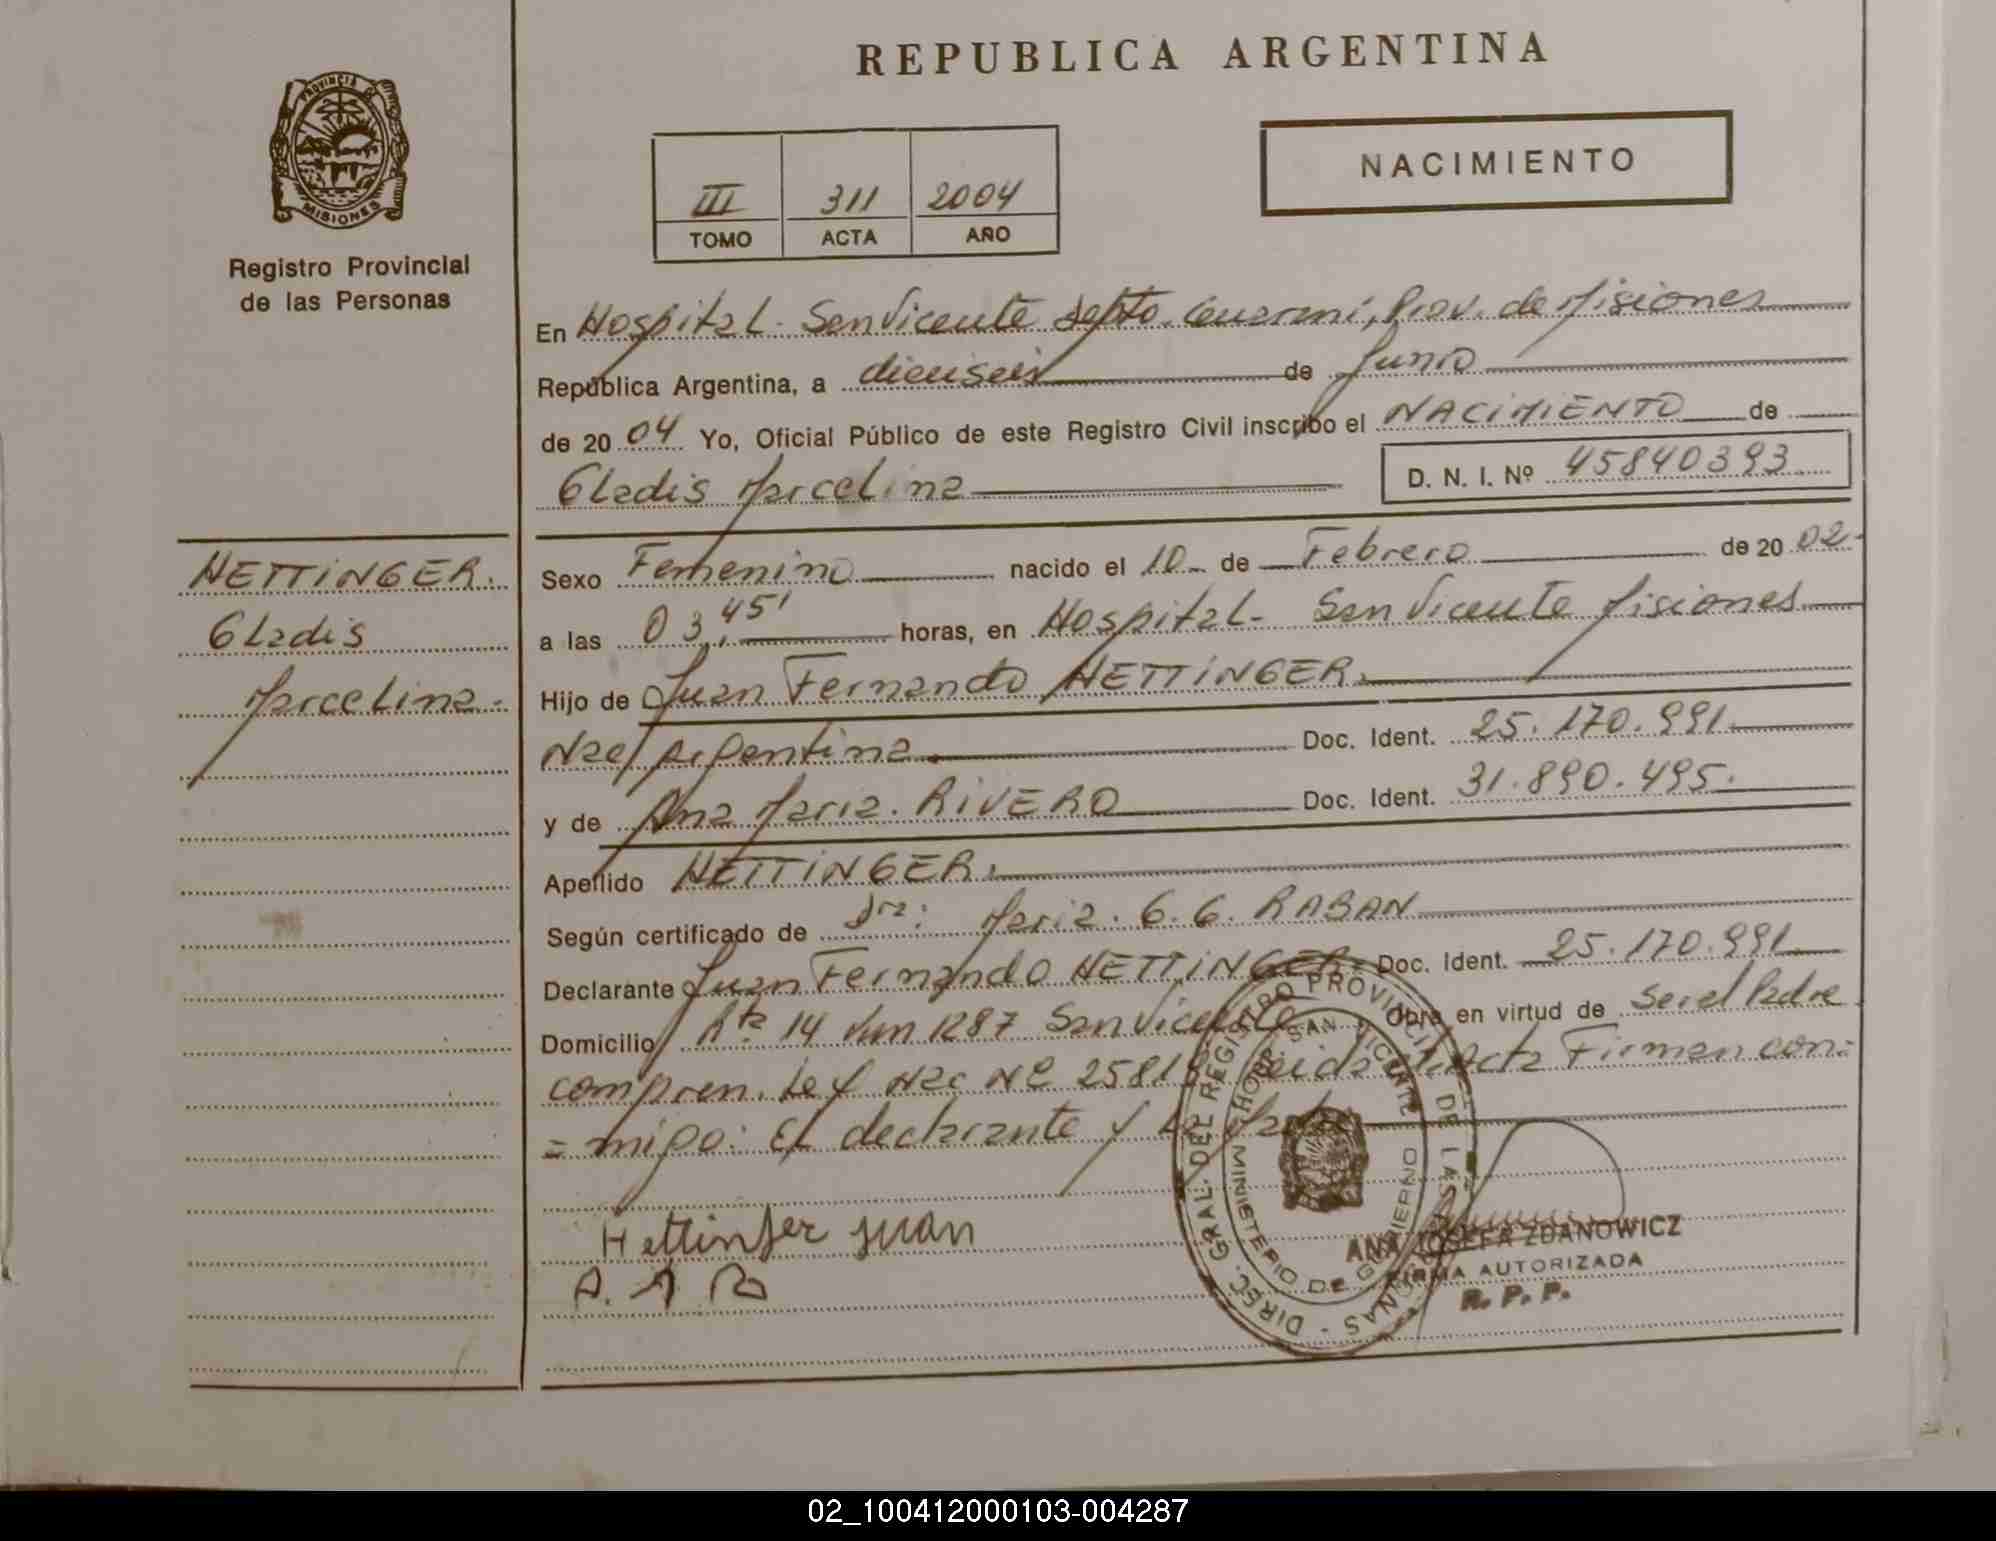 REPUBLICA ARGENTINA
PROVINCIA DE MISIONES
Registro Provincial
de las Personas
NACIMIENTO
III 311 2004
TOMO ACTA AÑO
En Hospital - San Vicente Depto. Guarani, Prov. de Misiones
República Argentina, a dieciseis de Junio
de 20 04 Yo, Oficial Público de este Registro Civil inscribo el NACIMIENTO de
Gladis Marcelina D. N. I. Nº 45840393
HETTINGER.
Gladis
Marcelina-
Sexo Femenino nacido el 10- de Febrero de 20 02-
a las 03,45' horas, en Hospital- San Vicente Misiones
Hijo de Juan Fernando HETTINGER.
Nac/ Argentina Doc. Ident. 25.170.991
y de Ana Maria. RIVERO Doc. Ident. 31.890.495.
Apellido HETTINGER.
Según certificado de Dra: Maria. G. G. RABAN
Declarante Juan Fernando HETTINGER. Doc. Ident. 25.170.991
Domicilio Rta 14 Km 1287 San Vicente Obra en virtud de Ser el Padre
compren. Ley Nac Nº 25818 Leida el Acta Firman con=
= migo: El declarante y La Madre
Hettinger juan
A. M R
DIREC. GRAL. DEL REGISTRO PROVINCIAL DE LAS PERSONAS -
MINISTERIO DE GOBIERNO
SAN VICENTE
ANA JOSEFA ZDANOWICZ
FIRMA AUTORIZADA
R. P. P.
02_100412000103-004287